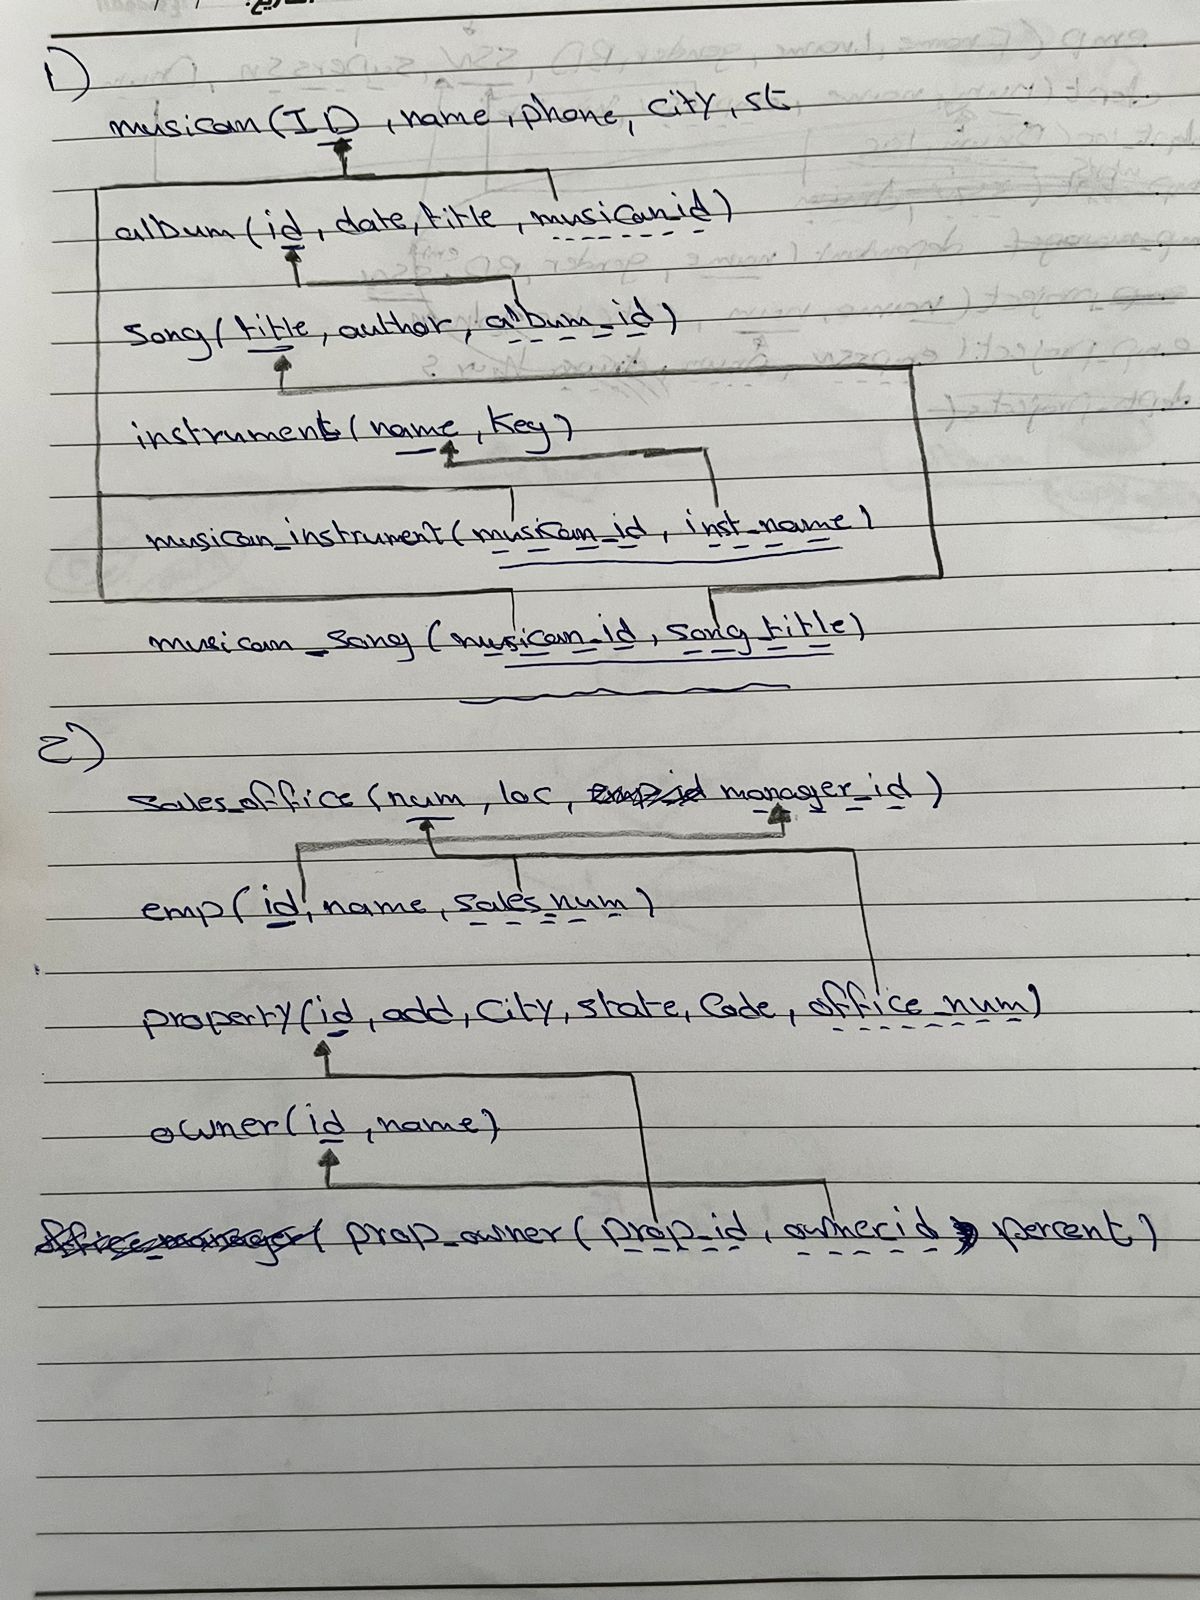 التاريخ: / /
1)
musican (ID, name, phone, city, st
album (id, date, title, musican_id)
song (title, author, album_id)
instrument (name, key)
musican_instrument (musican_id, inst_name)
musican_song (musican_id, song_title)
2)
sales_office (num, loc, emp_id manager_id)
emp (id, name, sales_num)
property (id, add, city, state, code, office_num)
owner (id, name)
prop_owner (prop_id, owner id, percent)